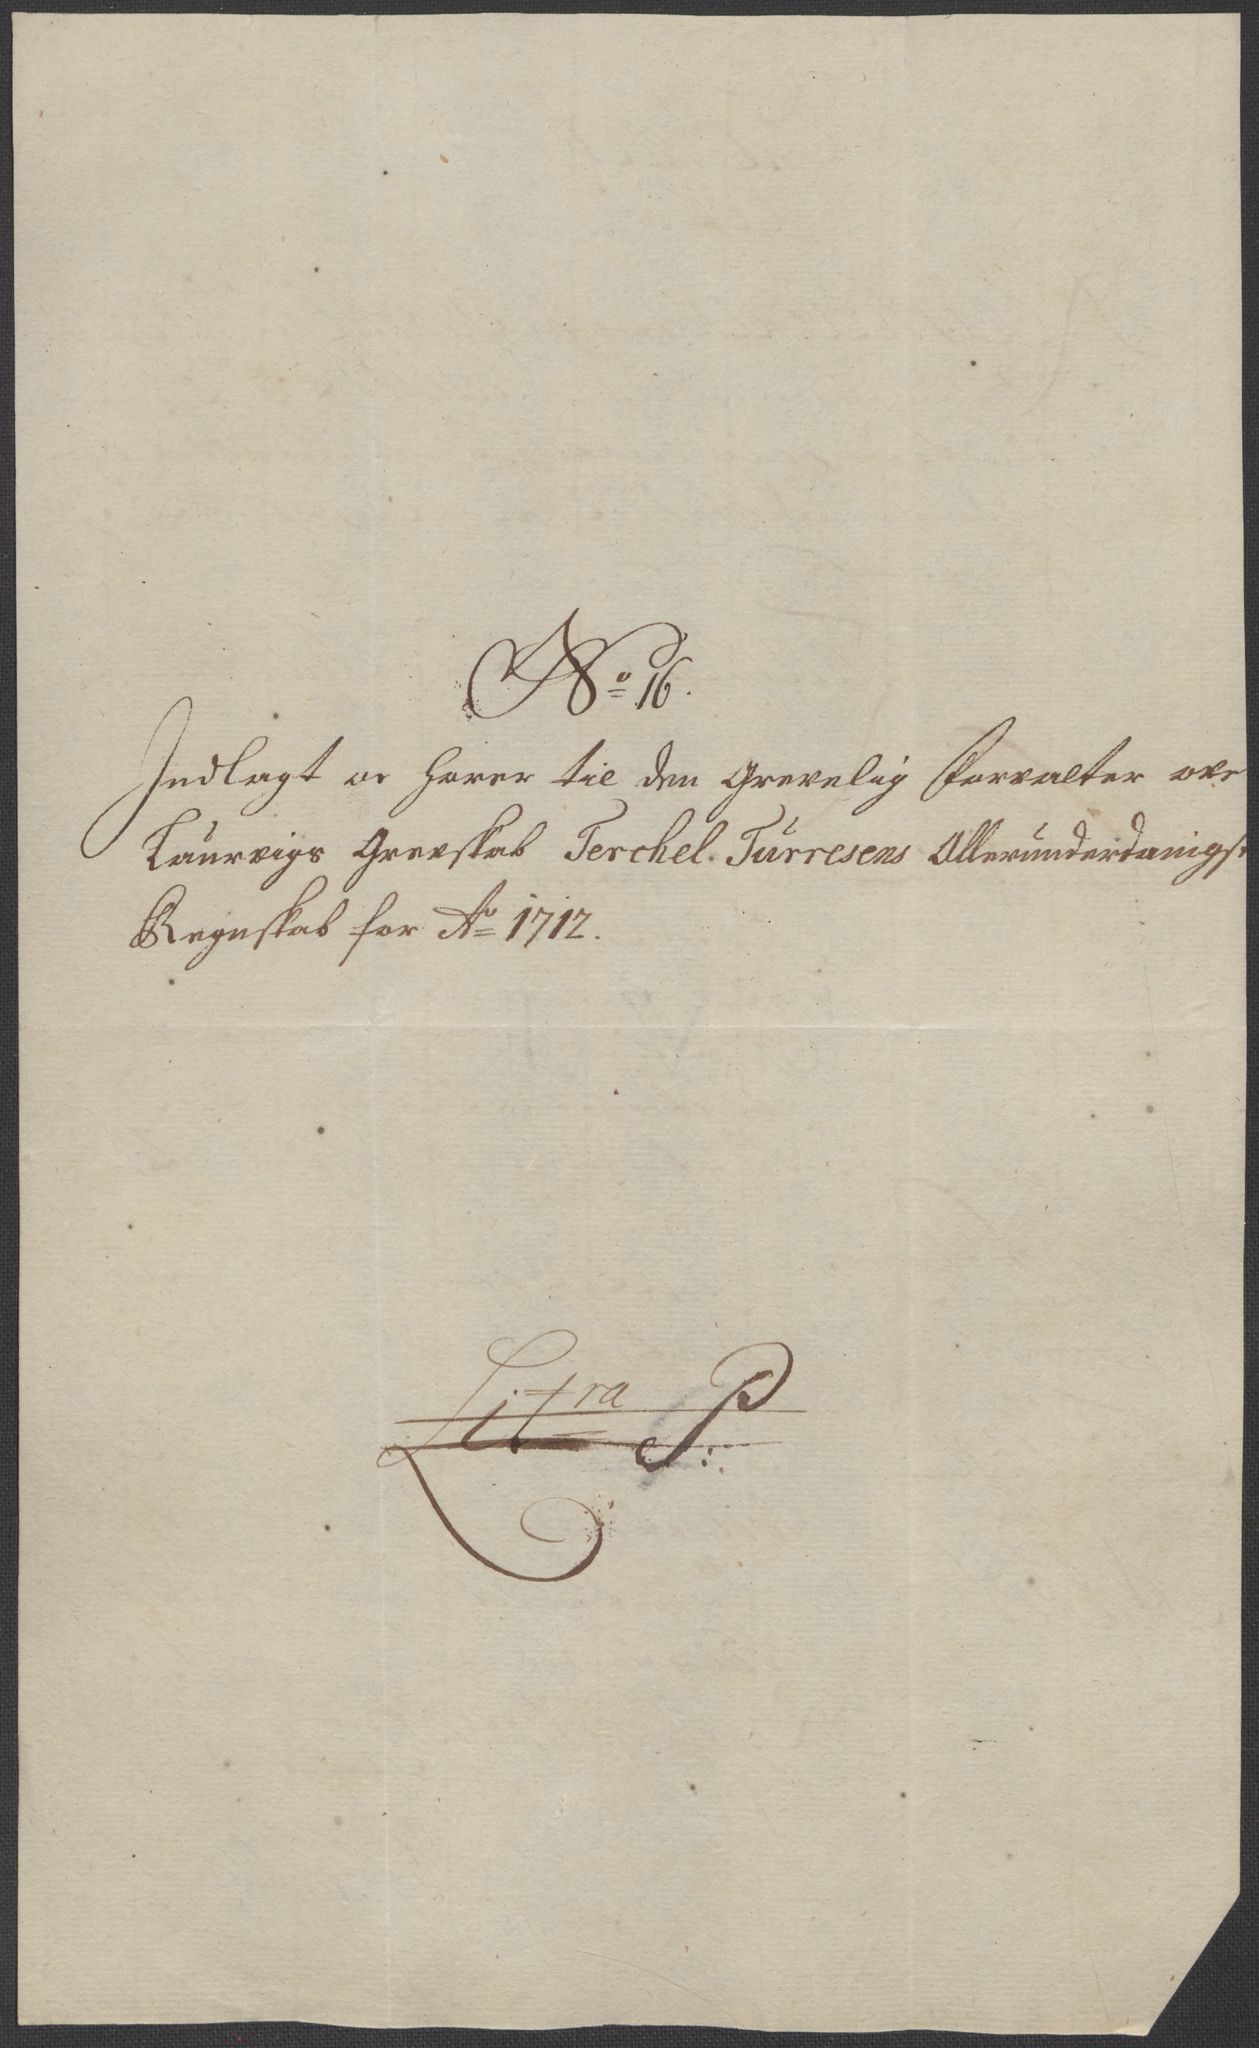 No 16.
Indlagt oc hører til den Grevelig Forvalter ove
Laurvigs Grevskab Terchel Turresens Allerunderdanigst
Regnskab for Ao 1712.
Litra P: